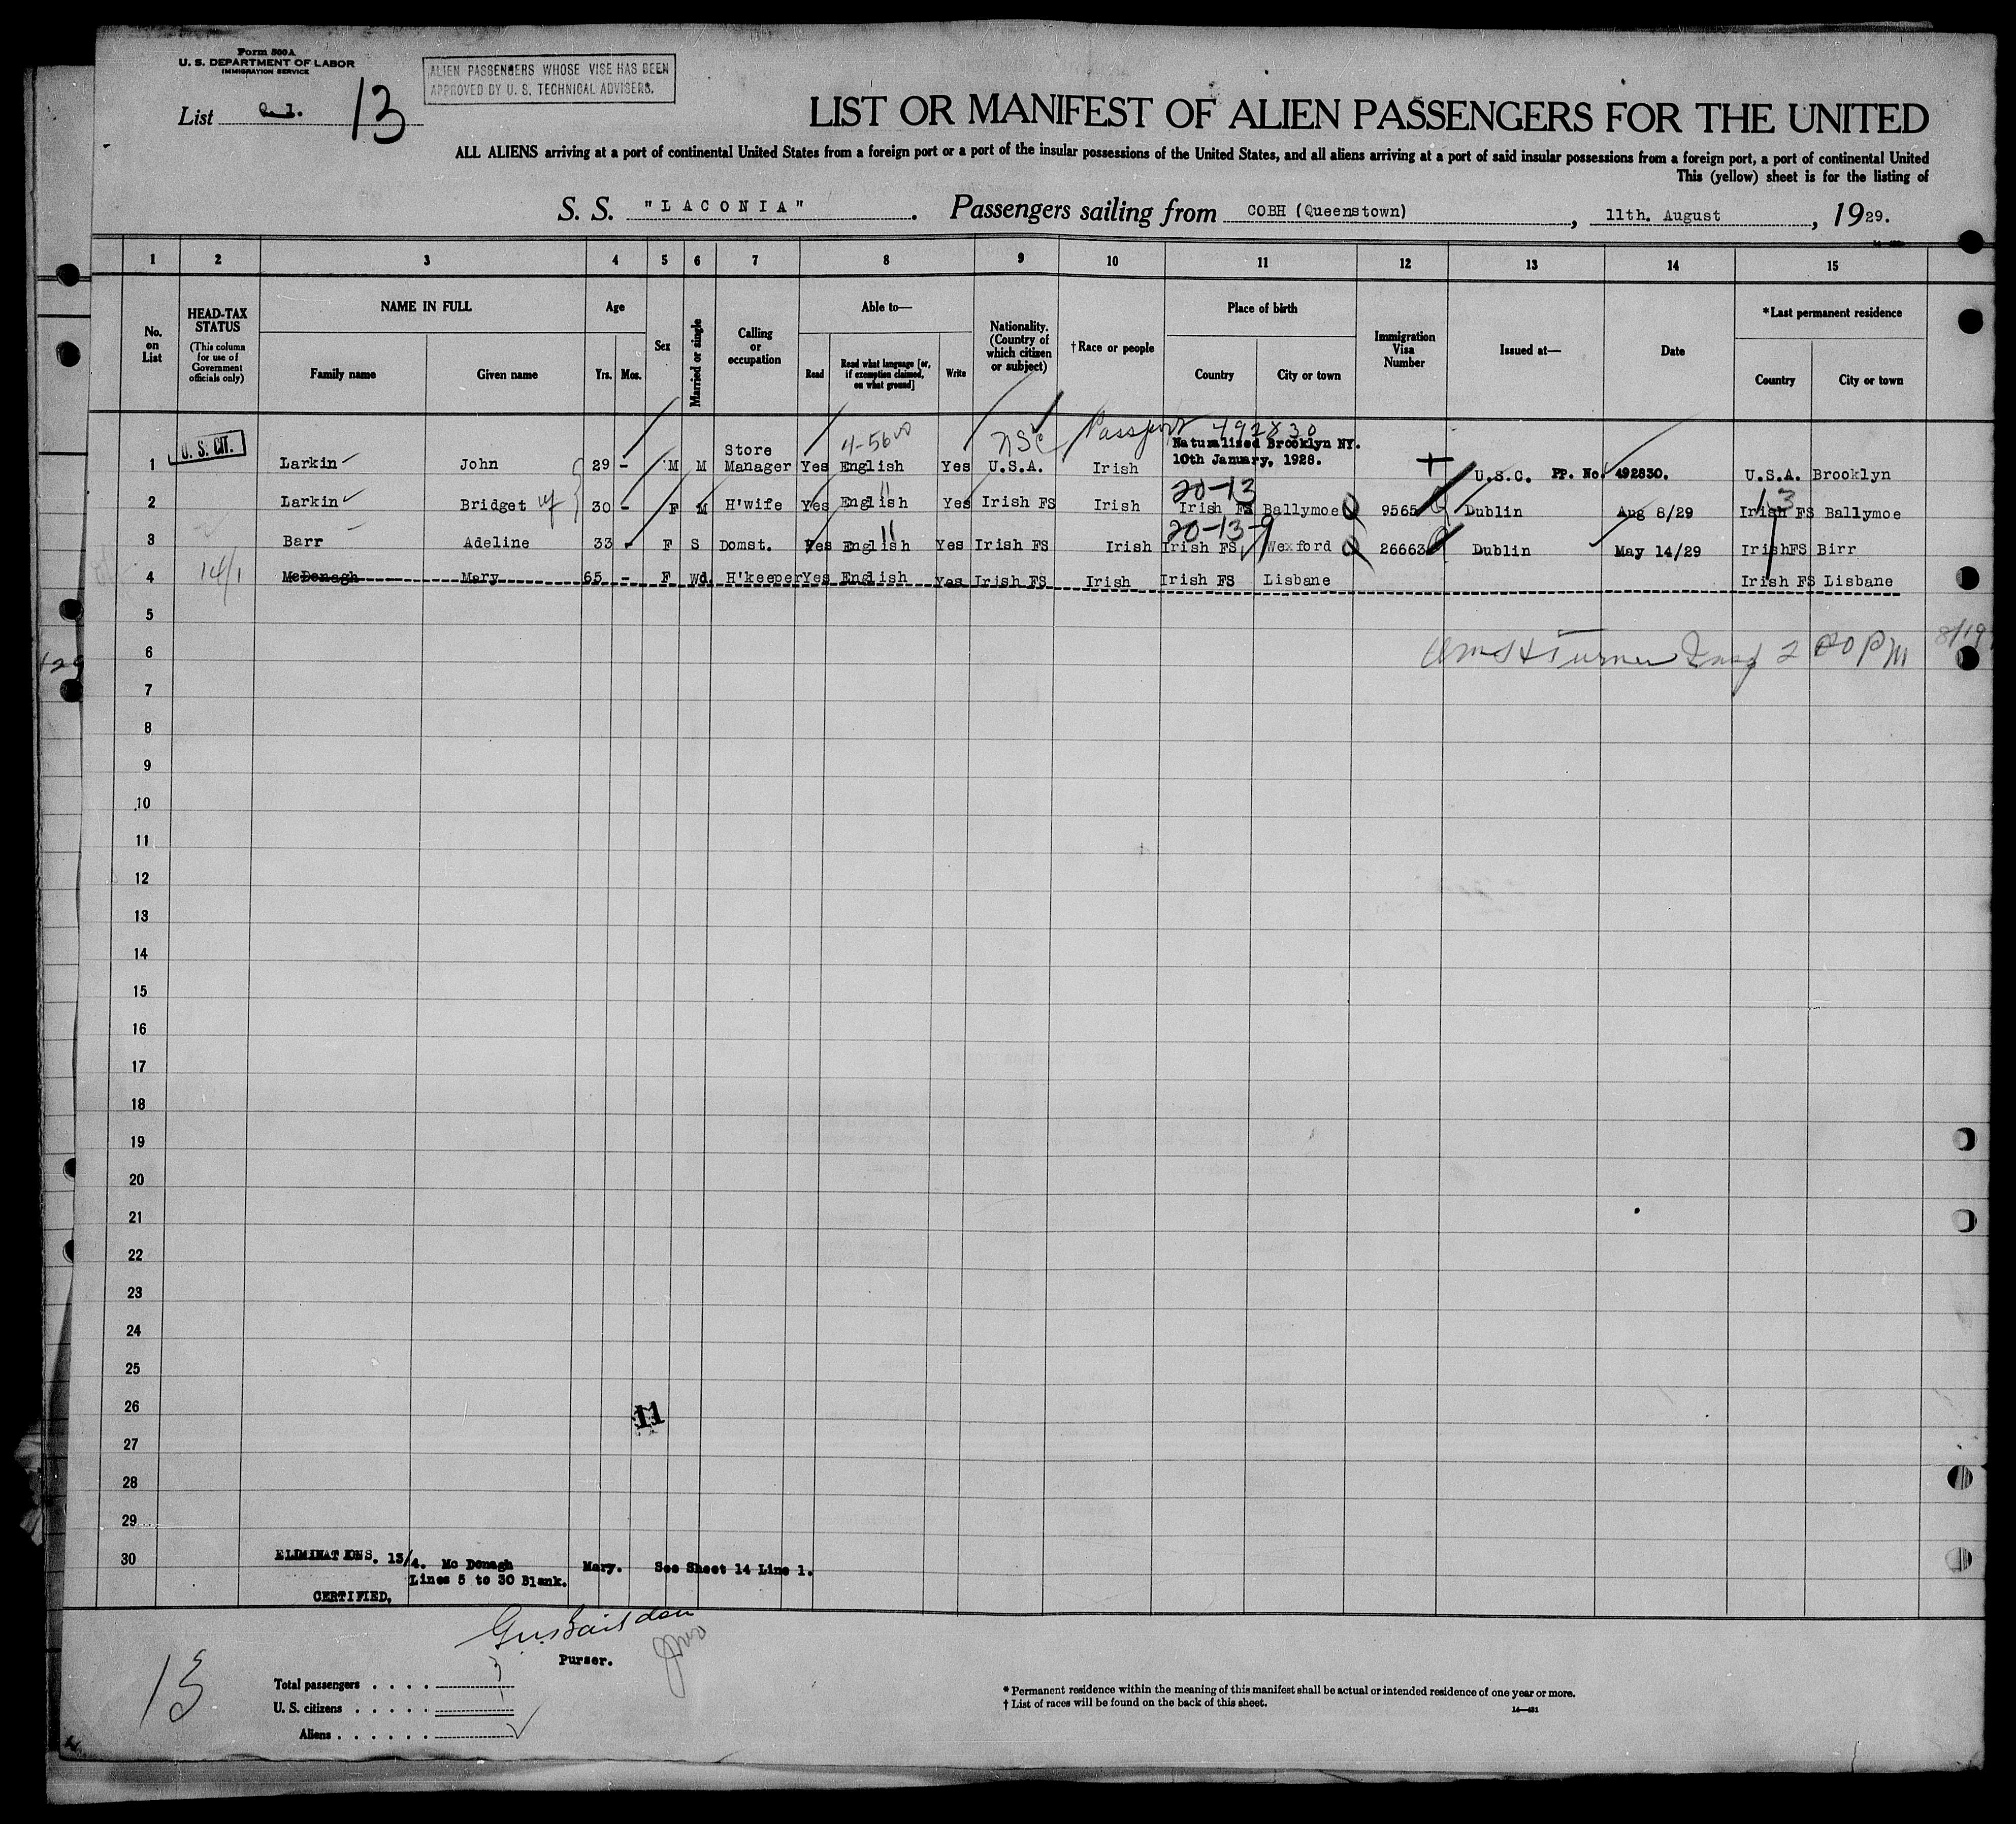 Form 500A
U. S. DEPARTMENT OF LABOR
IMMIGRATION SERVICE
ALIEN PASSENGERS WHOSE VISE HAS BEEN
APPROVED BY U. S. TECHNICAL ADVISERS.
List 13
LIST OR MANIFEST OF ALIEN PASSENGERS FOR THE UNITED
ALL ALIENS arriving at a port of continental United States from a foreign port or a port of the insular possessions of the United States, and all aliens arriving at a port of said insular possessions from a foreign port, a port of continental United
This (yellow) sheet is for the listing of
S. S. "LACONIA". Passengers sailing from COBH (Queenstown), 11th. August, 1929.
1 2 3 4 5 6 7 8 9 10 11 12 13 14 15
No. on List
HEAD-TAX STATUS
(This column for use of Government officials only)
NAME IN FULL
Family name Given name
Age
Yrs. Mos.
Sex
Married or single
Calling or occupation
Able to—
Read Read what language [or, if exemption claimed, on what ground] Write
Nationality. (Country of which citizen or subject)
†Race or people
Place of birth
Country City or town
Immigration Visa Number
Issued at—
Date
*Last permanent residence
Country City or town
U. S. CIT.
4-5600 Passport 492830
1 Larkin John 29 - M M Store Manager Yes English Yes U.S.A. Irish Naturalized Brooklyn NY. 10th January, 1928. U.S.C. PP. No. 492830. U.S.A. Brooklyn
20-13 13
2 Larkin Bridget wf 30 - F M H'wife Yes English Yes Irish FS Irish Irish FS Ballymoe 9565 Dublin Aug 8/29 Irish FS Ballymoe
20-13-9
3 Barr Adeline 33 - F S Domst. Yes English Yes Irish FS Irish Irish FS Wexford 26663 Dublin May 14/29 IrishFS Birr
4 14/1 McDonagh Mary 65 - F Wd H'keeper Yes English Yes Irish FS Irish Irish FS Lisbane Irish FS Lisbane
5
6 Turner 2 00 PM 8/19
7
8
9
10
11
12
13
14
15
16
17
18
19
20
21
22
23
24
25
26 11
27
28
29
30 ELIMINATIONS. 13/4. Mc Donagh Mary. See Sheet 14 Line 1.
Lines 5 to 30 Blank.
CERTIFIED,
Purser.
13
Total passengers . . . .
U. S. citizens . . . . .
Aliens . . . . . .
* Permanent residence within the meaning of this manifest shall be actual or intended residence of one year or more.
† List of races will be found on the back of this sheet.
14—431